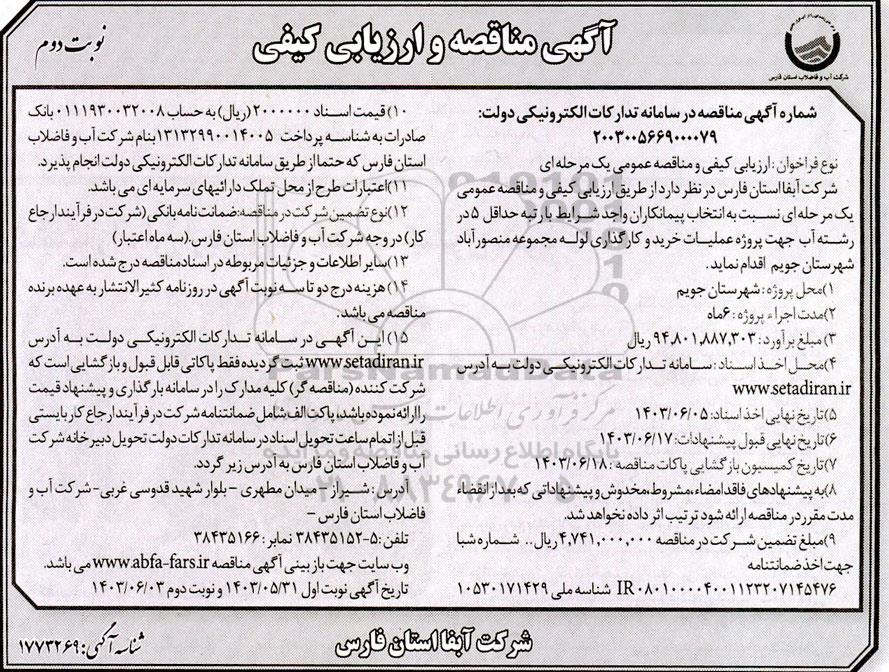 آگهی مناقصه و ارزیابی کیفی
نوبت دوم
شرکت آب و فاضلاب استان فارس
شماره آگهی مناقصه در سامانه تدارکات الکترونیکی دولت:
۲۰۰۳۰۰۵۶۶۹۰۰۰۰۷۹
نوع فراخوان: ارزیابی کیفی و مناقصه عمومی یک مرحله ای
شرکت آبفا استان فارس در نظر دارد از طریق ارزیابی کیفی و مناقصه عمومی
یک مرحله ای نسبت به انتخاب پیمانکاران واجد شرایط با رتبه حداقل ۵ در
رشته آب جهت پروژه عملیات خرید و کارگذاری لوله مجموعه منصور آباد
شهرستان جویم اقدام نماید.
۱)محل پروژه: شهرستان جویم
۲)مدت اجراء پروژه: ۶ماه
۳) مبلغ برآورد: ۹۴,۸۰۱,۸۸۷,۳۰۳ ریال
۴)محل اخذ اسناد: سامانه تدارکات الکترونیکی دولت به آدرس
www.setadiran.ir
۵)تاریخ نهایی اخذ اسناد: ۱۴۰۳/۰۶/۰۵
۶)تاریخ نهایی قبول پیشنهادات: ۱۴۰۳/۰۶/۱۷
۷)تاریخ کمیسیون بازگشایی پاکات مناقصه: ۱۴۰۳/۰۶/۱۸
۸)به پیشنهادهای فاقد امضاء،مشروط،مخدوش و پیشنهاداتی که بعد از انقضاء
مدت مقرر در مناقصه ارائه شود ترتیب اثر داده نخواهد شد.
۹)مبلغ تضمین شرکت در مناقصه ۴,۷۴۱,۰۰۰,۰۰۰ ریال.. شماره شبا
جهت اخذ ضمانتنامه
IR ۰۸۰۱۰۰۰۰۴۰۰۱۱۲۳۲۰۷۱۴۵۴۷۶ شناسه ملی ۱۰۵۳۰۱۷۱۴۲۹
۱۰) قیمت اسناد ۲۰۰۰۰۰۰ (ریال) به حساب ۰۱۱۱۹۳۰۰۳۲۰۰۸ بانک
صادرات به شناسه پرداخت ۱۳۱۳۲۹۹۰۰۱۴۰۰۵ بنام شرکت آب و فاضلاب
استان فارس که حتما از طریق سامانه تدارکات الکترونیکی دولت انجام پذیرد.
۱۱)اعتبارات طرح از محل تملک دارائیهای سرمایه ای می باشد.
۱۲)نوع تضمین شرکت در مناقصه:ضمانت نامه بانکی (شرکت در فرآیند ارجاع
کار) در وجه شرکت آب و فاضلاب استان فارس.(سه ماه اعتبار)
۱۳)سایر اطلاعات و جزئیات مربوطه در اسناد مناقصه درج شده است.
۱۴) هزینه درج دو تا سه نوبت آگهی در روزنامه کثیرالانتشار به عهده برنده
مناقصه می باشد.
۱۵) این آگهی در سامانه تدارکات الکترونیکی دولت به آدرس
www.setadiran.ir ثبت گردیده فقط پاکاتی قابل قبول و بازگشایی است که
شرکت کننده (مناقصه گر) کلیه مدارک را در سامانه بارگذاری و پیشنهاد قیمت
را ارائه نموده باشد، پاکت الف شامل ضمانتنامه شرکت در فرآیند ارجاع کار بایستی
قبل از اتمام ساعت تحویل اسناد در سامانه تدارکات دولت تحویل دبیرخانه شرکت
آب و فاضلاب استان فارس به آدرس زیر گردد.
آدرس: شیراز - میدان مطهری - بلوار شهید قدوسی غربی- شرکت آب و
فاضلاب استان فارس –
تلفن: ۵-۳۸۴۳۵۱۵۲ نمابر: ۳۸۴۳۵۱۶۶
وب سایت جهت بازبینی آگهی مناقصه www.abfa-fars.ir می باشد.
تاریخ آگهی نوبت اول ۱۴۰۳/۰۵/۳۱ و نوبت دوم ۱۴۰۳/۰۶/۰۳
ParsNamadData
مرکز فرآوری اطلاعات
پایگاه اطلاع رسانی مناقصه و مزایده
شرکت آبفا استان فارس
شناسه آگهی: ۱۷۷۳۲۶۹